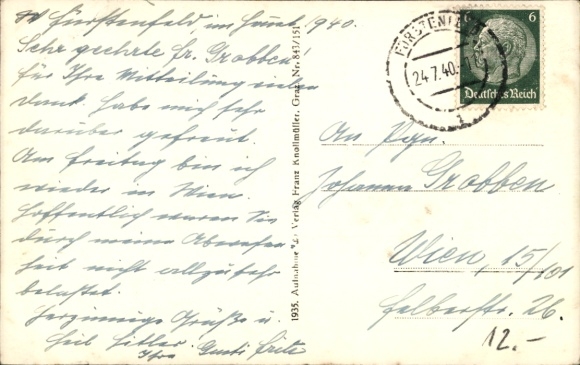 Fürstenfeld, im 1940.
Sehr geehrte Fr. Grobben!
für Ihre Mitteilung vielen
Dank. Habe mich sehr
darüber gefreut.
Am Freitag bin ich
wieder in Wien.
Hoffentlich waren Sie
durch meine Abwesen
heit nicht allzusehr
belastet.
Herzinnige Grüße u.
Heil Hitler.
Ihre Gusti
1935. Aufnahme u. Verlag Franz Knollmüller, Graz. Nr. 847/151
FÜRSTENFELD
24.7.40.
1
6 6
Deutsches Reich
An Pgn.
Johanna Grobben
Wien, 15/101
Felberstr. 26.
12.-